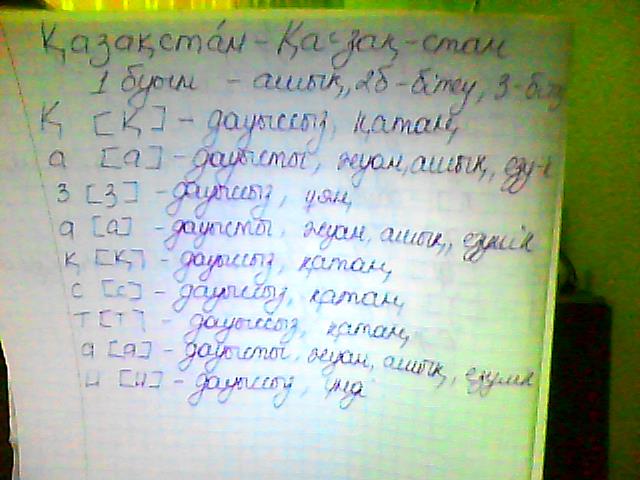 Қазақста́н - Қа-зақ-стан
1 буын - ашық, 2б - бітеу, 3-
Қ [Қ] - дауыссыз, қатаң,
а [а] - дауысты, жуан, ашық, езу-
з [з] - дауыссыз, ұяң,
а [а] - дауысты, жуан, ашық, езулік
қ [қ] - дауыссыз, қатаң,
с [с] - дауыссыз, қатаң,
т [т] - дауыссыз, қатаң,
а [а] - дауысты, жуан, ашық, езулік
н [н] - дауыссыз,